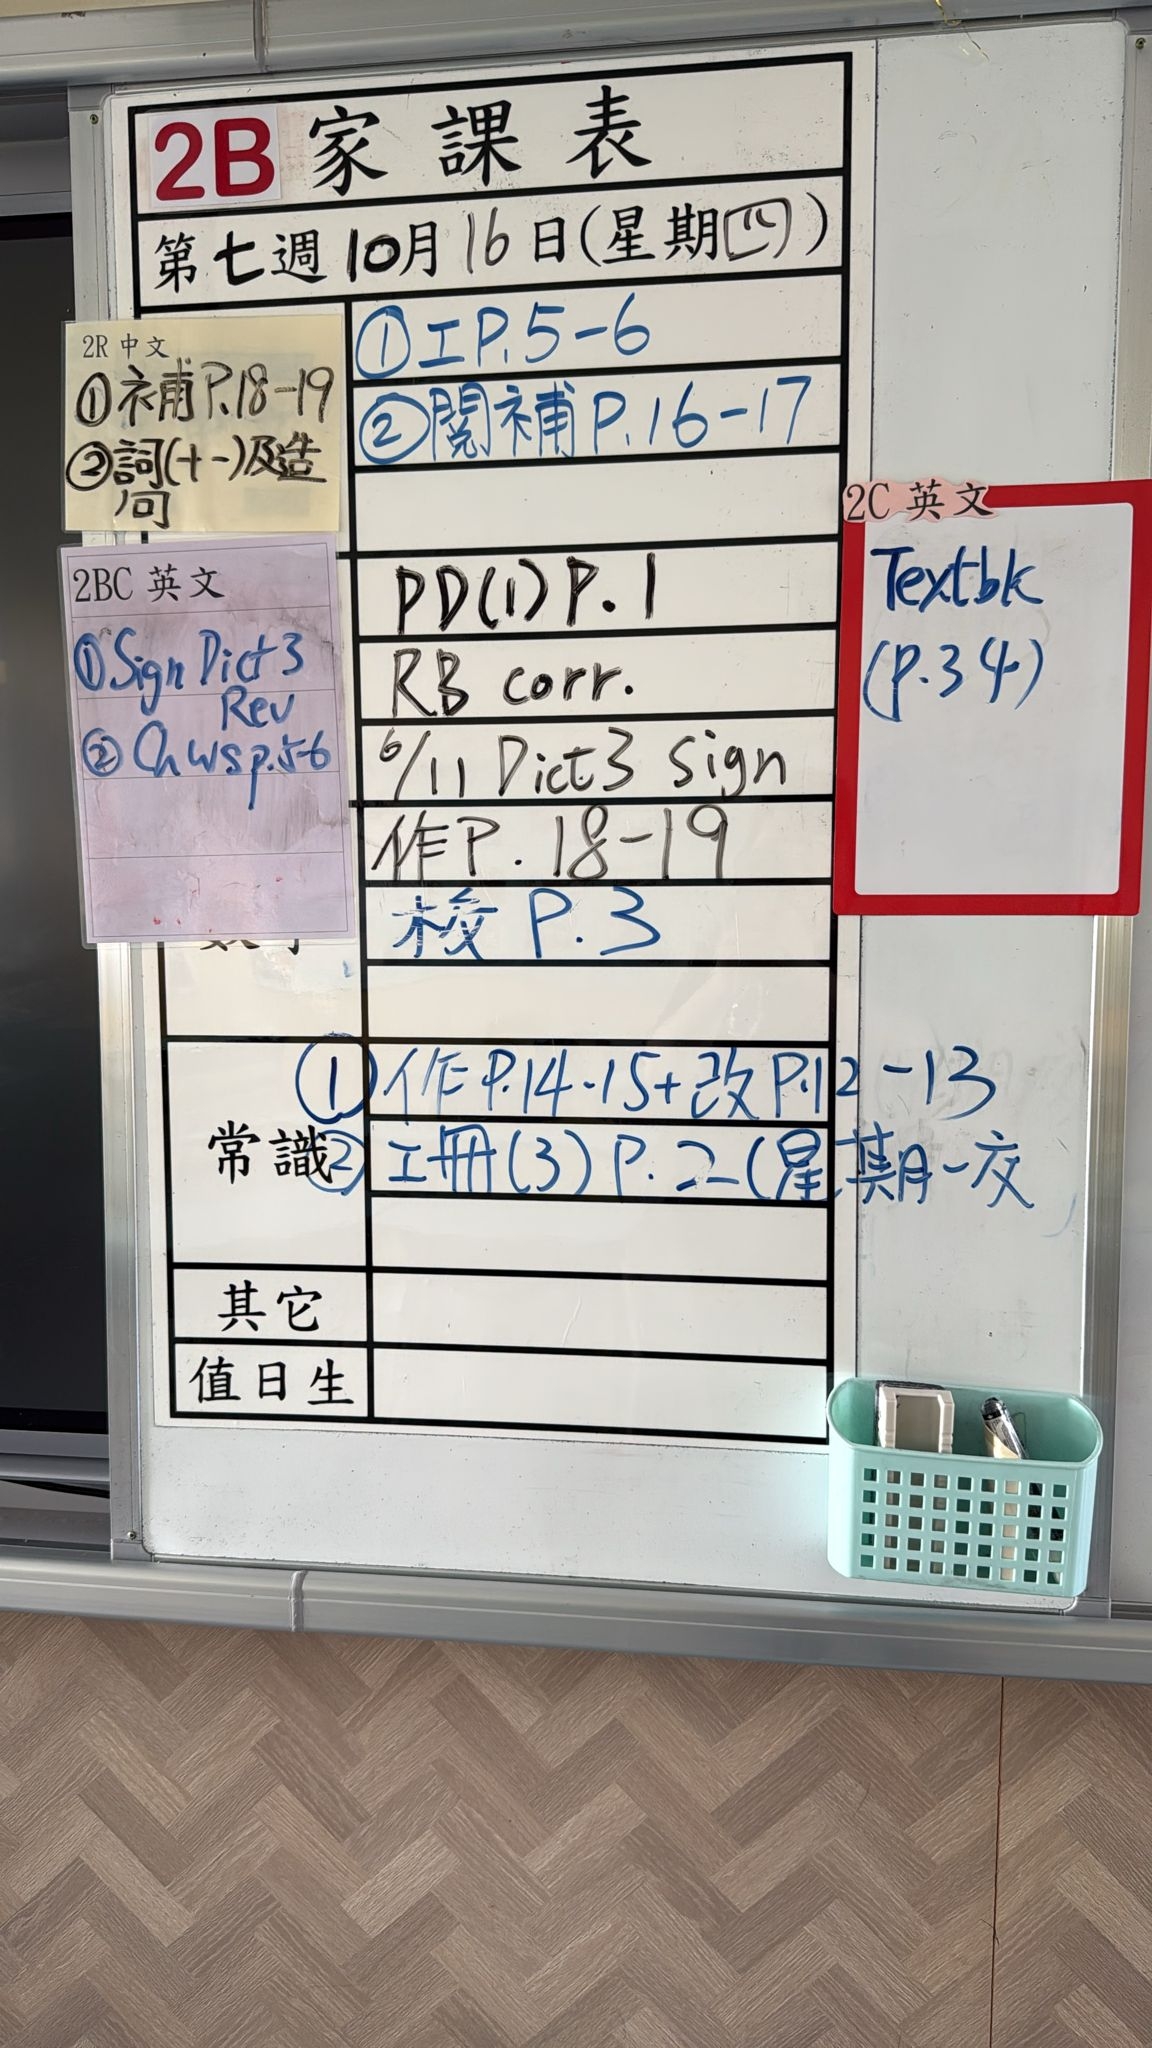 2B 家課表
第七週10月16日(星期四)
①工P.5-6
②閱補P.16-17
2R 中文
①補P.18-19
②詞(十一)及造句
PD(1)P.1
RB corr.
6/11 Dict3 sign
2BC 英文
①Sign Dict 3
Rev
②Ch WS p.5-6
2C 英文
Textbk
(p.34)
作P.18-19
校 P.3
常識
①作P.14-15+改P.12-13
②工冊(3)P.2(星期一交)
其它
值日生